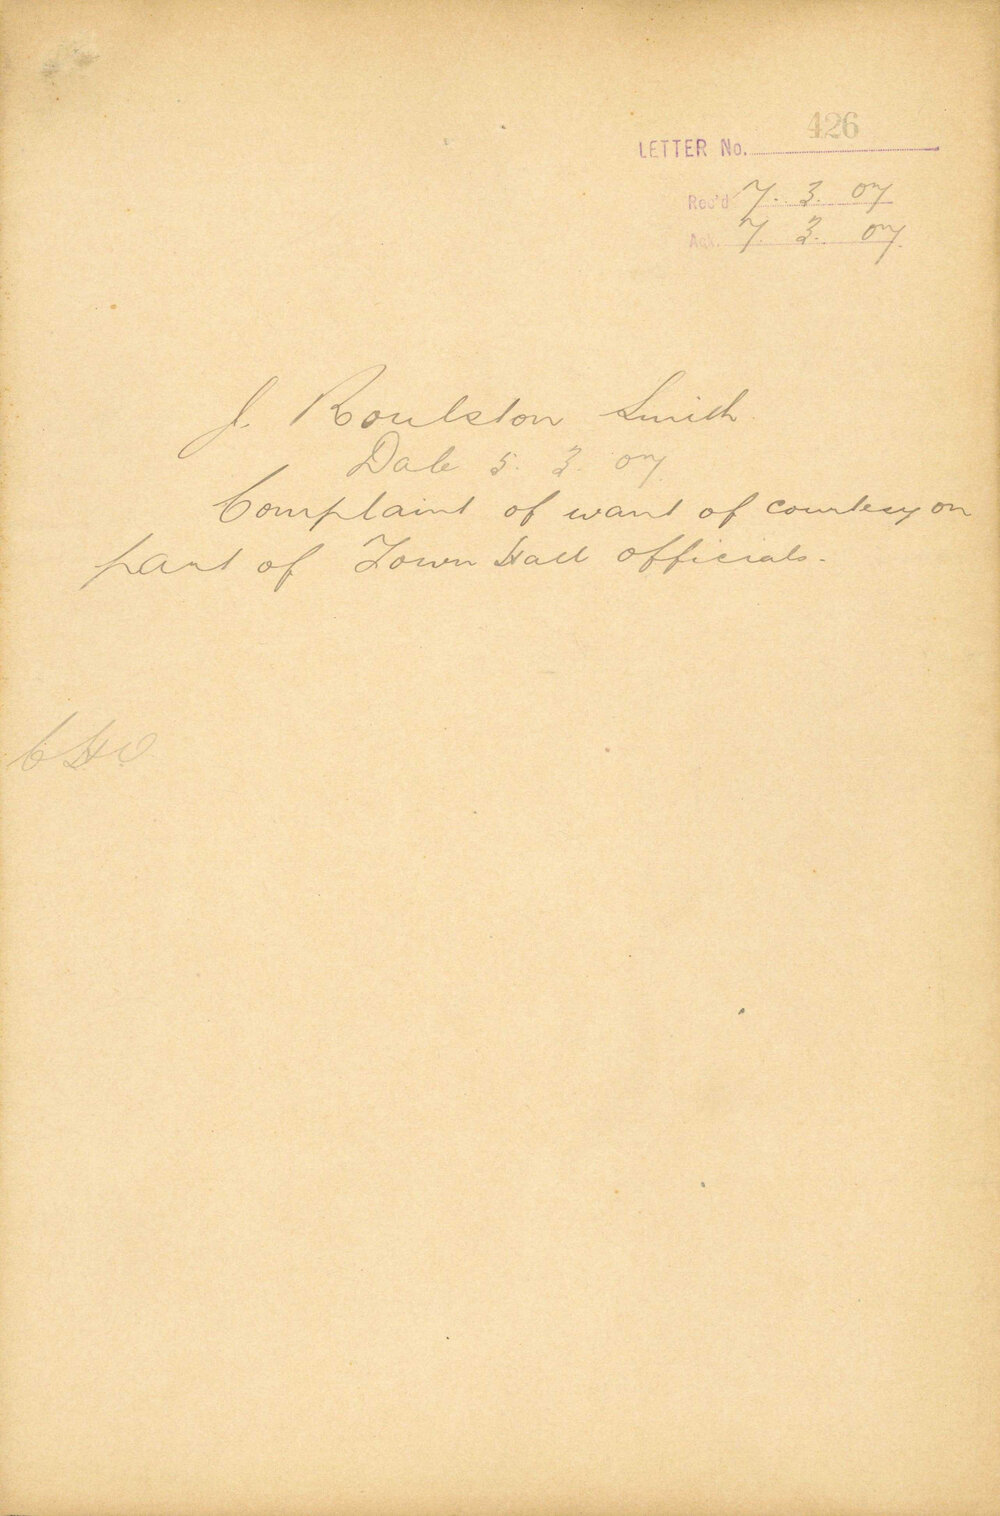 LETTER No. 426
Rec'd 7. 3. 07
Ack. 7. 3. 07
J. Roulston Smith
Date 5. 3. 07
Complaint of want of courtesy on
part of Town Hall officials.